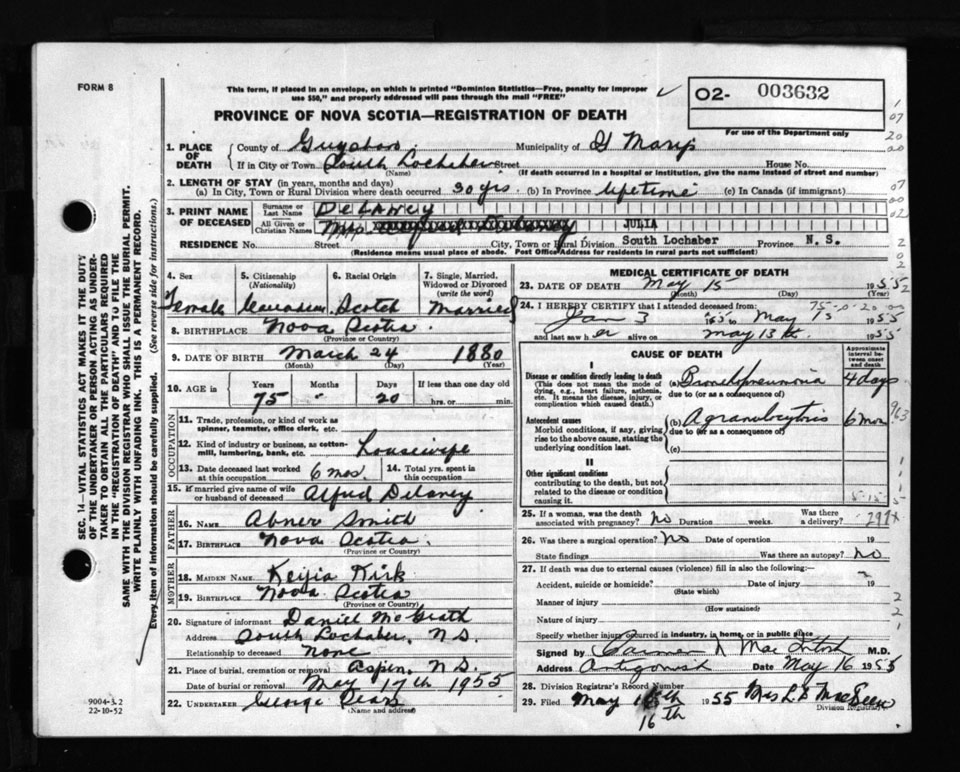 FORM 8
This form, if placed in an envelope, on which is printed "Dominion Statistics—Free, penalty for improper
use $50," and properly addressed will pass through the mail "FREE"
PROVINCE OF NOVA SCOTIA—REGISTRATION OF DEATH
O2- 003632
For use of the Department only
1. PLACE OF DEATH
County of Guysboro Municipality of St Marys
If in City or Town South Lochaber Street House No.
(Name) (If death occurred in a hospital or institution, give the name instead of street and number)
2. LENGTH OF STAY (in years, months and days)
(a) In City, Town or Rural Division where death occurred 30 yrs. (b) In Province lifetime (c) In Canada (if immigrant)
3. PRINT NAME OF DECEASED
Surname or Last Name Delaney
All Given or Christian Names Mrs JULIA
RESIDENCE No. Street City, Town or Rural Division South Lochaber Province N. S.
(Residence means usual place of abode. Post Office Address for residents in rural parts not sufficient)
4. Sex Female
5. Citizenship (Nationality) Canadian
6. Racial Origin Scotch
7. Single, Married, Widowed or Divorced (write the word) Married
8. BIRTHPLACE Nova Scotia
(Province or Country)
9. DATE OF BIRTH March 24 1880
(Month) (Day) (Year)
10. AGE in Years 75 Months " Days 20 If less than one day old hrs. or min.
OCCUPATION
11. Trade, profession, or kind of work as spinner, teamster, office clerk, etc.
12. Kind of industry or business, as cotton-mill, lumbering, bank, etc. Housewife
13. Date deceased last worked at this occupation 6 mos. 14. Total yrs. spent in this occupation
15. If married give name of wife or husband of deceased Alfred Delaney
FATHER
16. NAME Abner Smith
17. BIRTHPLACE Nova Scotia.
(Province or Country)
MOTHER
18. MAIDEN NAME Keijia Kirk
19. BIRTHPLACE Nova Scotia
(Province or Country)
20. Signature of informant Daniel McGrath
Address South Lochaber, N.S.
Relationship to deceased None
21. Place of burial, cremation or removal Aspen, N.S.
Date of burial or removal May 17th 1955
22. UNDERTAKER George
(Name and address)
MEDICAL CERTIFICATE OF DEATH
23. DATE OF DEATH May 15 1955
(Month) (Day) (Year)
24. I HEREBY CERTIFY that I attended deceased from:
Jan 3 May 13 1955
and last saw her alive on May 13th 1955
CAUSE OF DEATH
Approximate interval between onset and death
I
Disease or condition directly leading to death
(This does not mean the mode of dying, e.g., heart failure, asthenia, etc. It means the disease, injury, or complication which caused death.)
(a) Bronchopneumonia 4 days
due to (or as a consequence of)
Antecedent causes
Morbid conditions, if any, giving rise to the above cause, stating the underlying condition last.
(b) Agranulocytosis 6 mos
due to (or as a consequence of)
(c)
II
Other significant conditions
contributing to the death, but not related to the disease or condition causing it.
25. If a woman, was the death associated with pregnancy? No Duration weeks. Was there a delivery?
26. Was there a surgical operation? No Date of operation 19
State findings Was there an autopsy? No
27. If death was due to external causes (violence) fill in also the following:—
Accident, suicide or homicide? Date of injury 19
(State which)
Manner of injury
(How sustained)
Nature of injury
Specify whether injury occurred in industry, in home, or in public place
Signed by Mac Intosh M.D.
Address Antigonish Date May 16 1955
28. Division Registrar's Record Number
29. Filed May 16th 1955 Mrs L.B.
16th
Division Registrar
SEC. 14—VITAL STATISTICS ACT MAKES IT THE DUTY
OF THE UNDERTAKER OR PERSON ACTING AS UNDER-
TAKER TO OBTAIN ALL THE PARTICULARS REQUIRED
IN THE "REGISTRATION OF DEATH" AND TO FILE THE
SAME WITH THE DIVISION REGISTRAR WHO SHALL ISSUE THE BURIAL PERMIT.
WRITE PLAINLY WITH UNFADING INK. THIS IS A PERMANENT RECORD.
Every item of information should be carefully supplied. (See reverse side for instructions.)
9004-3.2
22-10-52